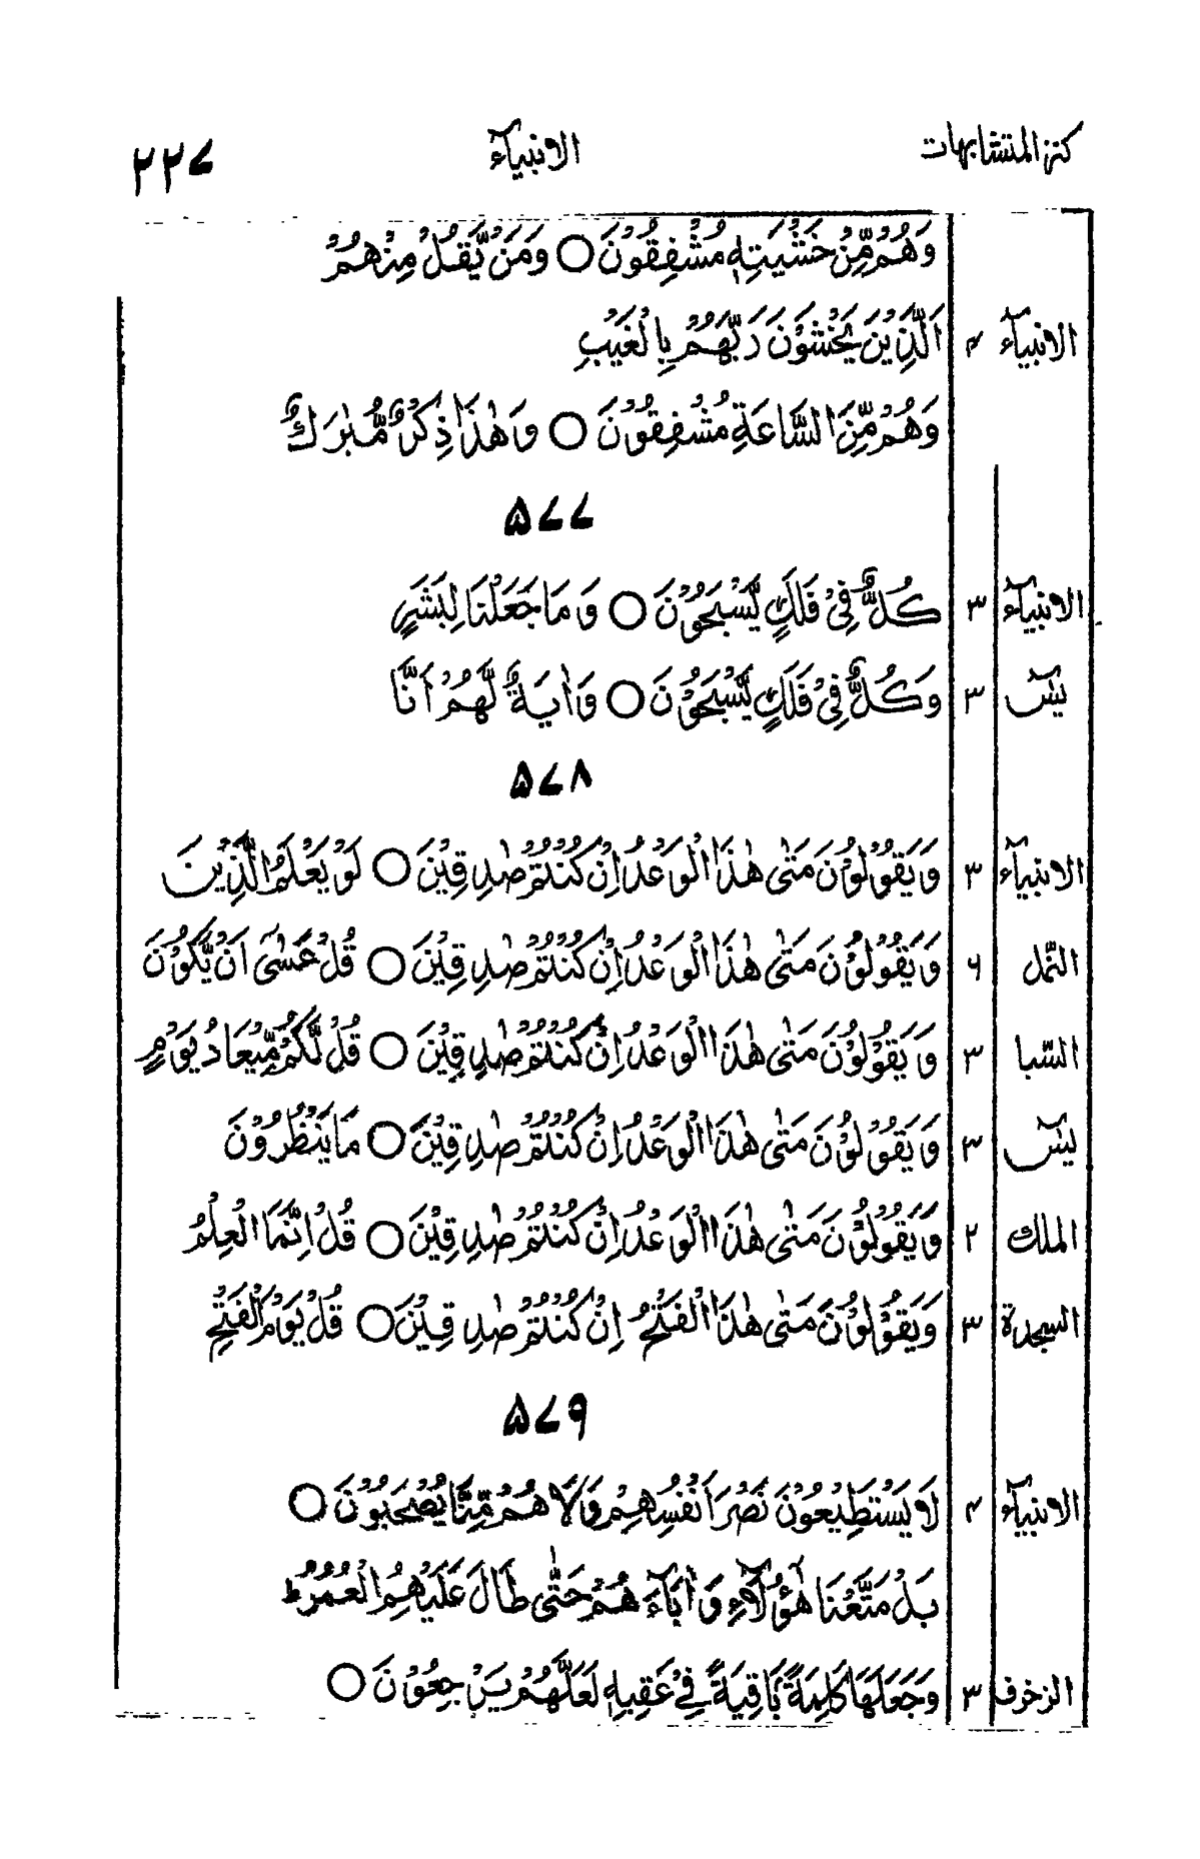 كنز المتشابهات الانبيآء ٢٢٧
وَهُمْ مِّنْ خَشْيَتِهٖ مُشْفِقُوْنَ ○ وَمَنْ يَّقُلْ مِنْهُمْ
الانبيآء ۴ اَلَّذِيْنَ يَخْشَوْنَ رَبَّهُمْ بِالْغَيْبِ
وَهُمْ مِّنَ السَّاعَةِ مُشْفِقُوْنَ ○ وَهٰذَا ذِكْرٌ مُّبٰرَكٌ
۵۷۷
الانبيآء ٣ كُلٌّ فِيْ فَلَكٍ يَّسْبَحُوْنَ ○ وَمَا جَعَلْنَا لِبَشَرٍ
يٰسٓ ٣ وَكُلٌّ فِيْ فَلَكٍ يَّسْبَحُوْنَ ○ وَاٰيَةٌ لَّهُمْ اَنَّا
۵۷۸
الانبيآء ٣ وَيَقُوْلُوْنَ مَتٰى هٰذَا الْوَعْدُ اِنْ كُنْتُمْ صٰدِقِيْنَ ○ لَوْ يَعْلَمُ الَّذِيْنَ
النّمل ۶ وَيَقُوْلُوْنَ مَتٰى هٰذَا الْوَعْدُ اِنْ كُنْتُمْ صٰدِقِيْنَ ○ قُلْ عَسٰٓى اَنْ يَّكُوْنَ
السّبا ٣ وَيَقُوْلُوْنَ مَتٰى هٰذَا الْوَعْدُ اِنْ كُنْتُمْ صٰدِقِيْنَ ○ قُلْ لَّكُمْ مِّيْعَادُ يَوْمٍ
يٰسٓ ٣ وَيَقُوْلُوْنَ مَتٰى هٰذَا الْوَعْدُ اِنْ كُنْتُمْ صٰدِقِيْنَ ○ مَا يَنْظُرُوْنَ
الملك ٢ وَيَقُوْلُوْنَ مَتٰى هٰذَا الْوَعْدُ اِنْ كُنْتُمْ صٰدِقِيْنَ ○ قُلْ اِنَّمَا الْعِلْمُ
السجدة ٣ وَيَقُوْلُوْنَ مَتٰى هٰذَا الْفَتْحُ اِنْ كُنْتُمْ صٰدِقِيْنَ ○ قُلْ يَوْمَ الْفَتْحِ
۵۷۹
الانبيآء ۴ لَا يَسْتَطِيْعُوْنَ نَصْرَ اَنْفُسِهِمْ وَلَا هُمْ مِّنَّا يُصْحَبُوْنَ ○
بَلْ مَتَّعْنَا هٰٓؤُلَآءِ وَاٰبَآءَهُمْ حَتّٰى طَالَ عَلَيْهِمُ الْعُمُرُ ؕ
الزخرف ٣ وَجَعَلَهَا كَلِمَةً بَاقِيَةً فِيْ عَقِبِهٖ لَعَلَّهُمْ يَرْجِعُوْنَ ○